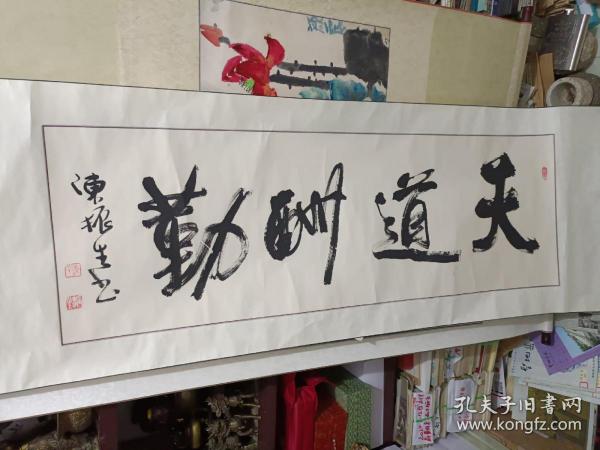 天道酬勤
陳振生書
孔夫子旧书网
www.kongfz.com